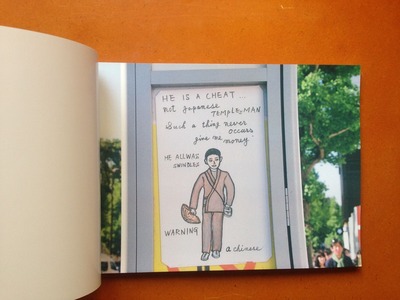 HE IS A CHEAT...
not Japanese
TEMPLE-MAN
Such a thing never
occurs
give me money
HE ALLWAS
SWINDLES
WARNING
a chinese